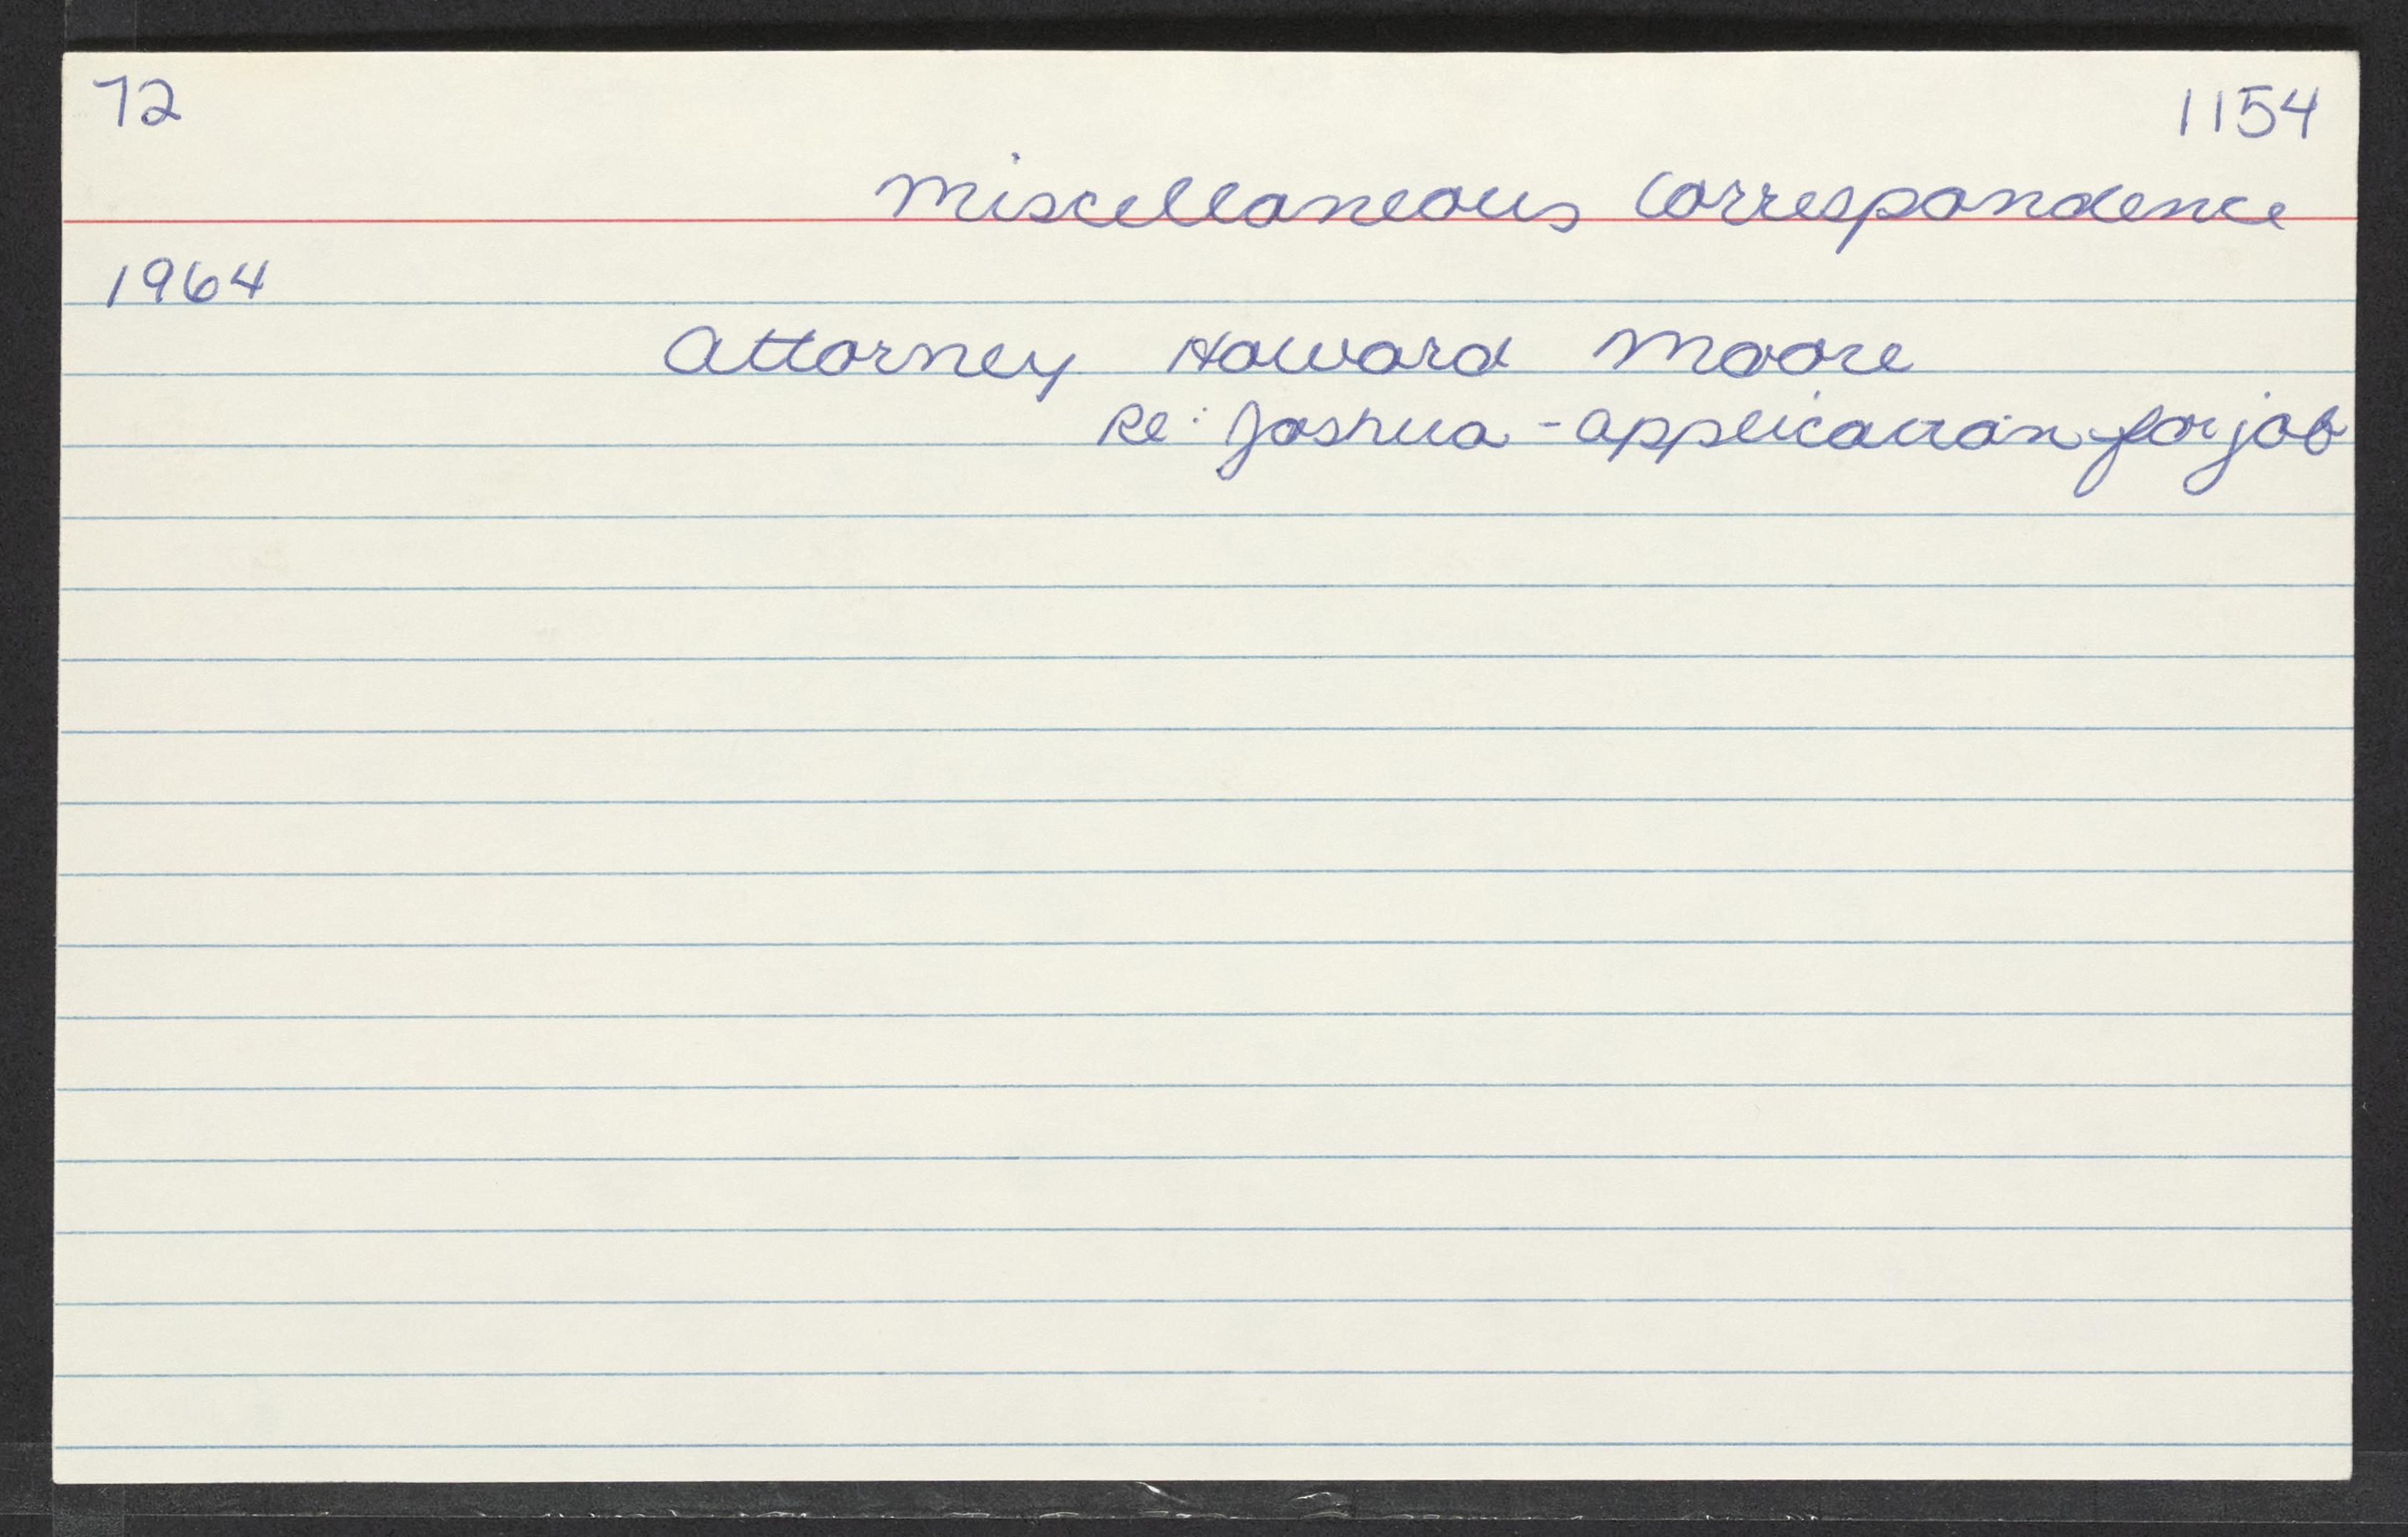 72 1154
Miscellaneous Correspondence
1964
Attorney Howard Moore
Re: Joshua - application for job